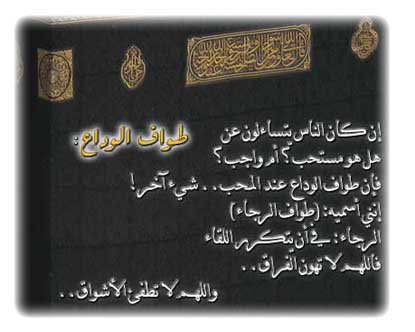 إن كان الناس يتساءلون عن
طواف الوداع :
هل هو مستحب؟ أم واجب؟
فإن طواف الوداع عند المحب.. شيء آخر!
إنني أسميه: (طواف الرجاء)
الرجاء: في أن يتكرر اللقاء
فاللهم لا تهون الفراق..
واللهم لا تطفئ الأشواق..